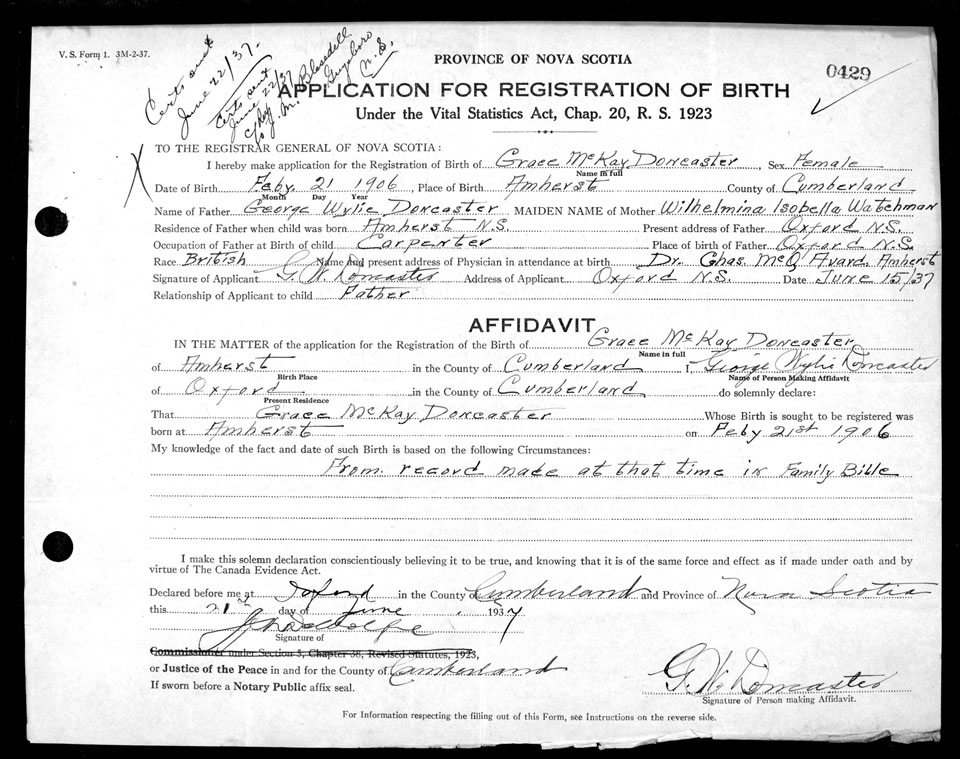 V. S. Form 1. 3M-2-37.
Certs sent
June 22/37.
Certs sent
June 22/37
c/o Rep
J. M. Blasedell
Guysboro
N.S.
PROVINCE OF NOVA SCOTIA
0429
APPLICATION FOR REGISTRATION OF BIRTH
Under the Vital Statistics Act, Chap. 20, R. S. 1923
TO THE REGISTRAR GENERAL OF NOVA SCOTIA:
X
I hereby make application for the Registration of Birth of Grace McKay Doncaster, Sex Female
Name in full
Date of Birth Feby. 21 1906, Place of Birth Amherst County of Cumberland
Month Day Year
Name of Father George Wylie Doncaster MAIDEN NAME of Mother Wilhelmina Isobella Watchman
Residence of Father when child was born Amherst N.S. Present address of Father Oxford N.S.
Occupation of Father at Birth of child Carpenter Place of birth of Father Oxford N.S.
Race British Name and present address of Physician in attendance at birth Dr. Chas. McQ Avard Amherst
Signature of Applicant G. W. Doncaster Address of Applicant Oxford N.S. Date June 15/37
Relationship of Applicant to child Father
AFFIDAVIT
IN THE MATTER of the application for the Registration of Birth of Grace McKay Doncaster
Name in full
of Amherst in the County of Cumberland I, George Wylie Doncaster
Birth Place Name of Person Making Affidavit
of Oxford in the County of Cumberland do solemnly declare:
Present Residence
That Grace McKay Doncaster Whose Birth is sought to be registered was
born at Amherst on Feby 21st 1906
My knowledge of the fact and date of such Birth is based on the following Circumstances:
From record made at that time in Family Bible
I make this solemn declaration conscientiously believing it to be true, and knowing that it is of the same force and effect as if made under oath and by
virtue of The Canada Evidence Act.
Declared before me at Oxford in the County of Cumberland and Province of Nova Scotia
this 21st day of June 1937
Signature of
Commissioner under Section 5, Chapter 38, Revised Statutes, 1923,
or Justice of the Peace in and for the County of Cumberland
G. W. Doncaster
If sworn before a Notary Public affix seal.
Signature of Person making Affidavit.
For Information respecting the filling out of this Form, see Instructions on the reverse side.